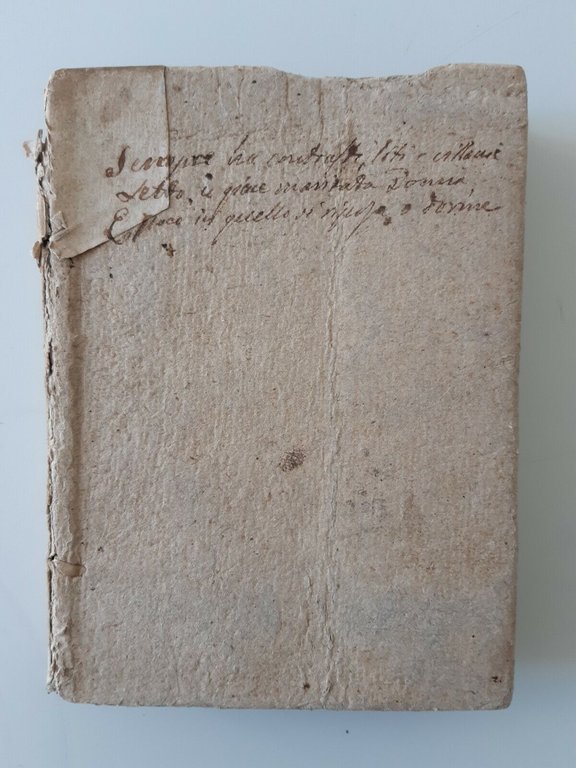 Sempre ha contrasti, liti e villanie
Letto, u giace maritata Donna,
E poco in quello si riposa, o dorme